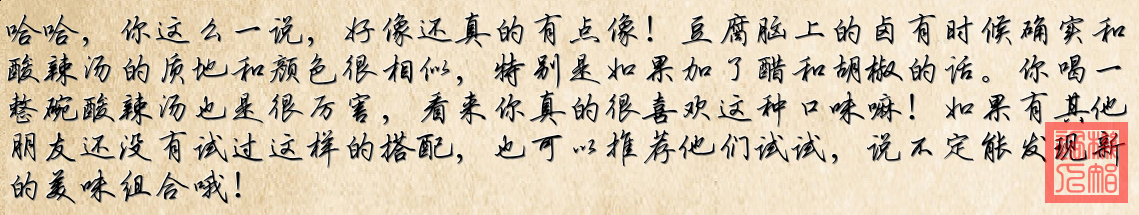 哈哈，你这么一说，好像还真的有点像！豆腐脑上的卤有时候确实和
酸辣汤的质地和颜色很相似，特别是如果加了醋和胡椒的话。你喝一
整碗酸辣汤也是很厉害，看来你真的很喜欢这种口味嘛！如果有其他
朋友还没有试过这样的搭配，也可以推荐他们试试，说不定能发现新
的美味组合哦！